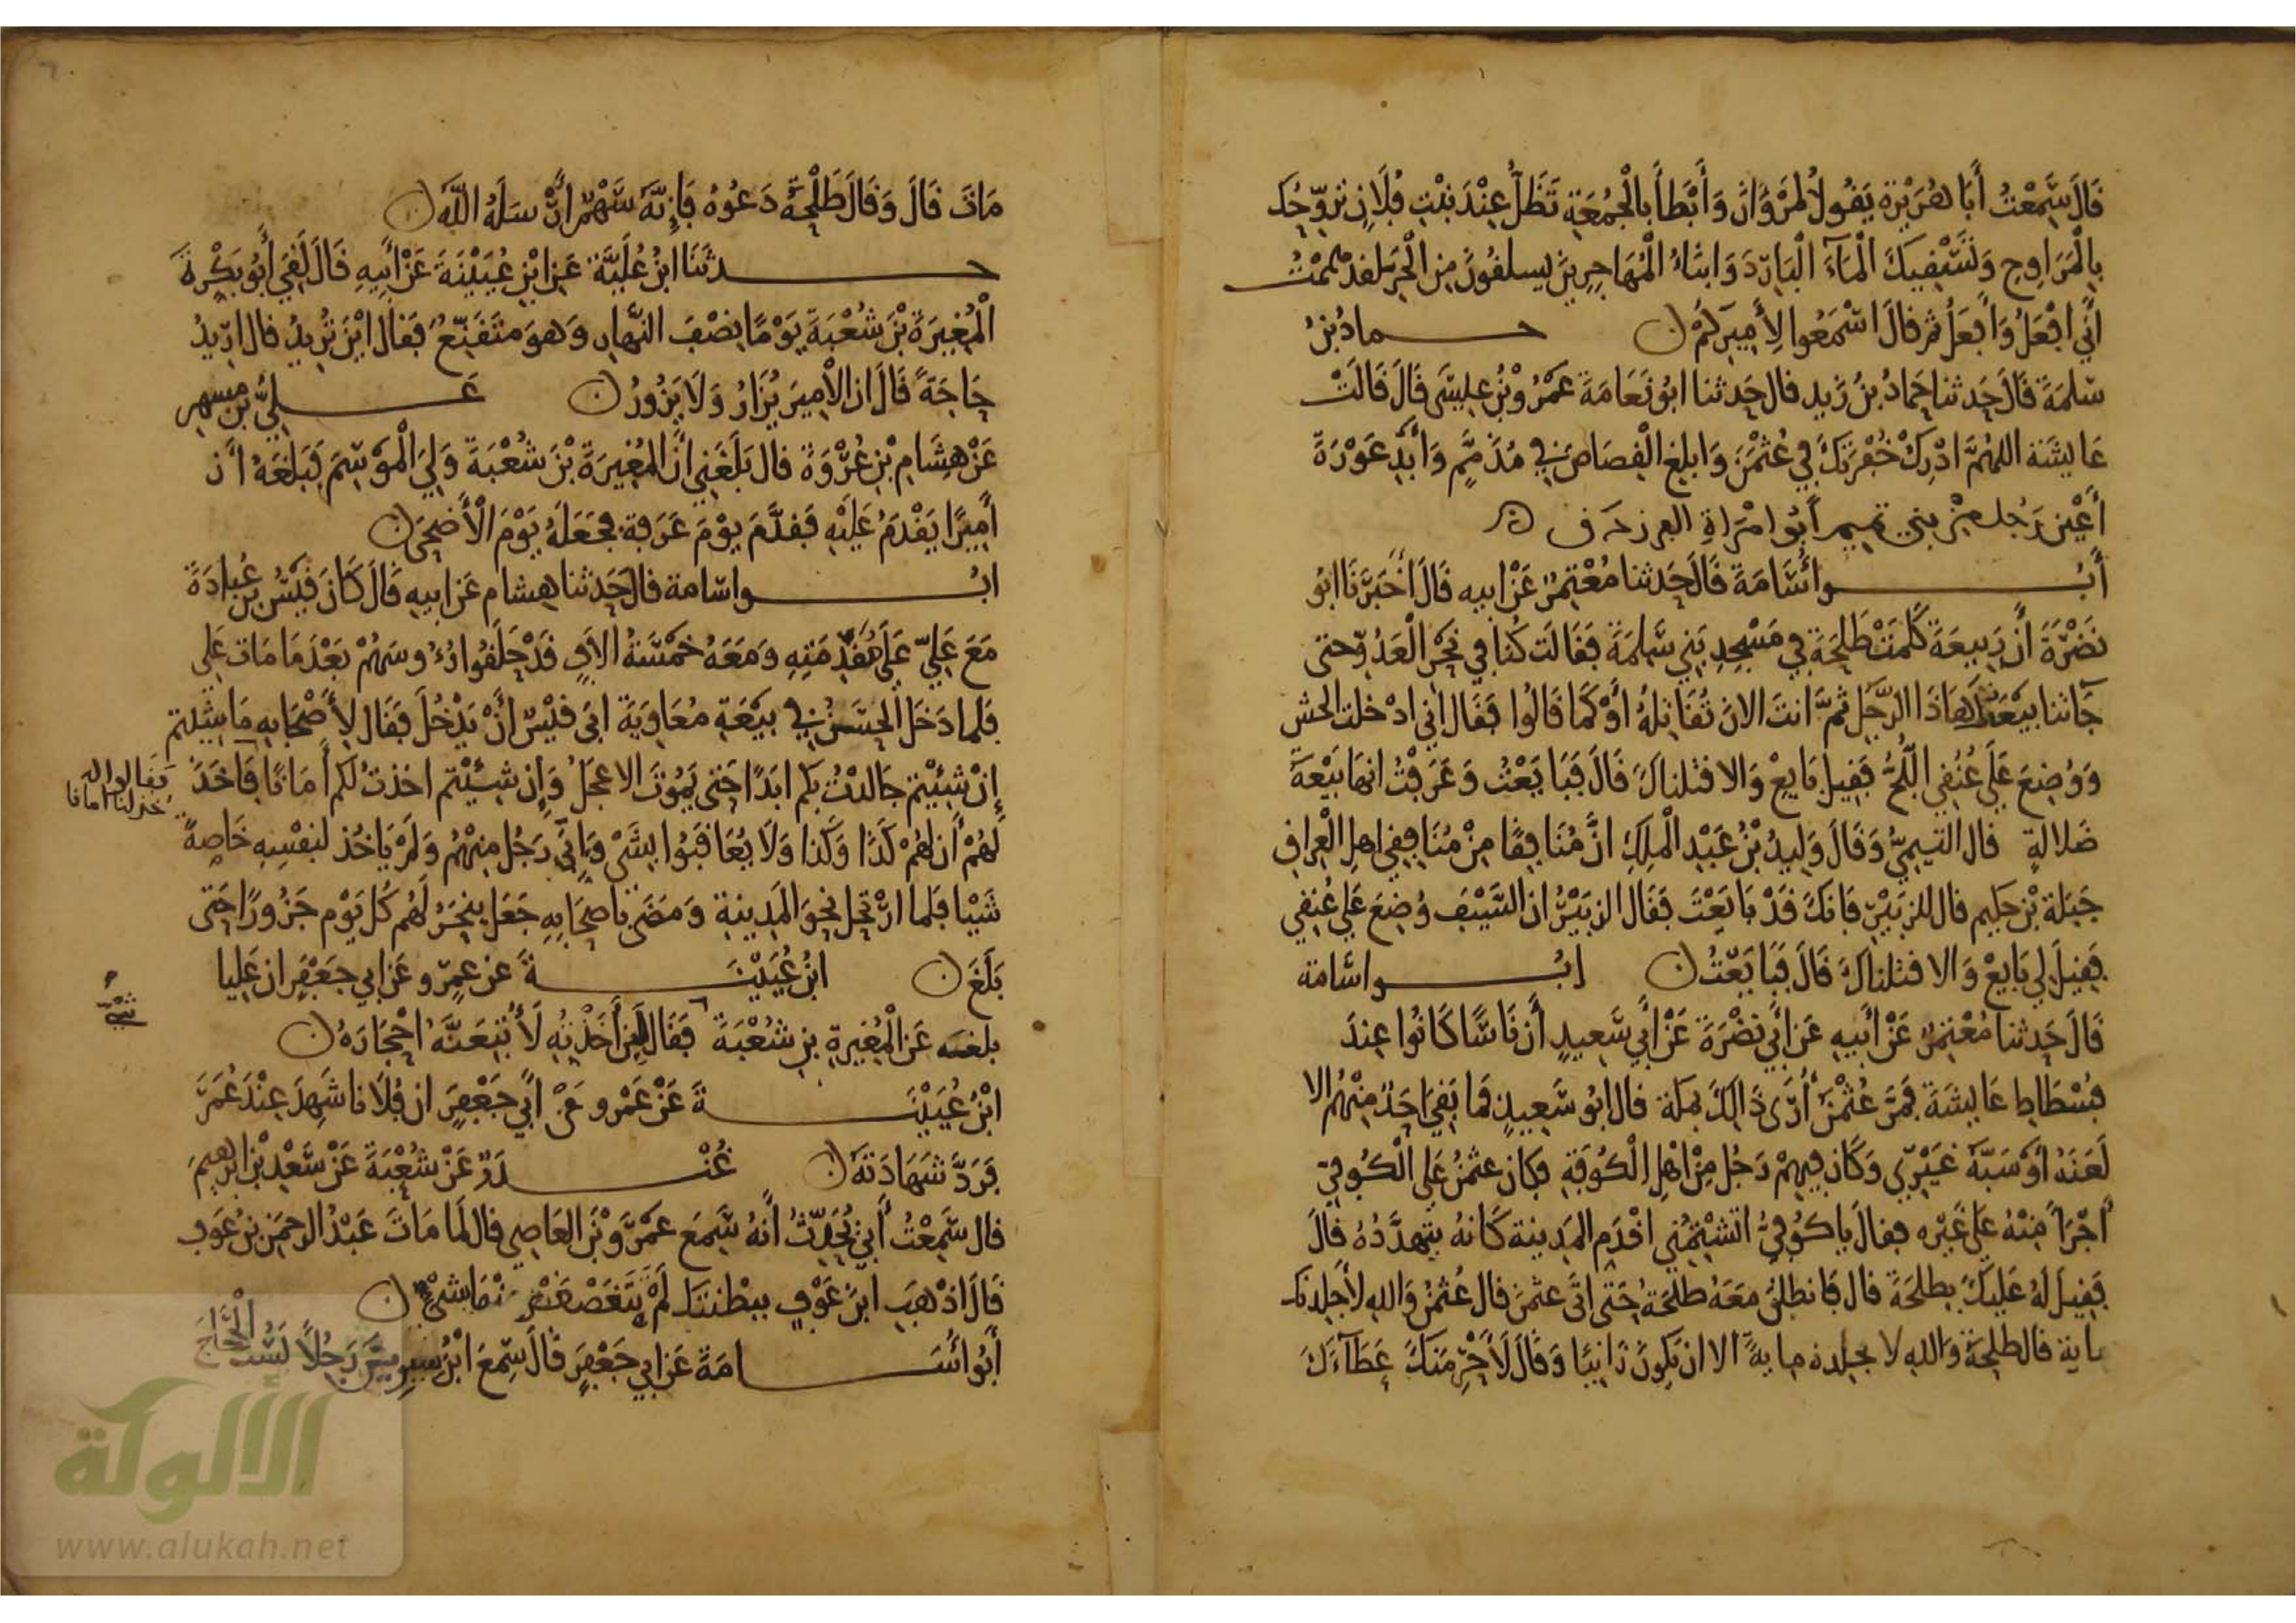 قَالَ سَمِعْتُ أَبَا هُرَيْرَةَ يَقُولُ لِمَرْوَانَ وَأَبْطَأَ بِالْجُمُعَةِ تَظَلُّ عِنْدَ بِنْتِ فُلَانٍ تُرَوِّحُكَ
بِالْمَرَاوِحِ وَتَسْقِيكَ الْمَآءَ الْبَارِدَ وَابْنَاءُ الْمُهَاجِرِينَ يسلقُونَ مِنَ الْحَرِّ لقد هممْتُ
أَنِّي افْعَلُ وَأَفْعَلُ ثم قالَ اسْمَعُوا لِأَمِيرِكُمْ حمادُ بْنُ
سَلمَةَ قَالَ حَدثنا حَمادُ بْنُ زَيد قال حَدثنا ابُو نَعَامَةَ عَمْرُو بْنُ عِيسَى قَالَ قَالَتْ
عَايِشَة اللهُمَّ ادْرِكْ خُفْرَتَكَ فِي عُثْمَنَ وَابلِغِ القِصَاصَ فِي مُذَمَّمٍ وَأَبْدِ عَوْرَةَ
أَعْيَنَ رَجُل مِنْ بني تميم أَبُو امْرَاةِ الفرزدق
أَبُو أُسَامَةَ قَالَ حَدثنا مُعْتَمِرٌ عَنْ ابيه قَالَ أَخْبَرَنَا ابُو
نَضْرَةَ أَن رَبِيعَةَ كَلَّمَتْ طَلْحَةَ فِي مَسْجِدِ بَنِي سَلِمَةَ فَقَالَت كُنا فِي نَحْرِ الْعَدُوِّ حتى
جَآتنا بَيْعَتُكَ هَاذَا الرَّجُلَ ثُمَّ انتَ الان تُقَاتِلُهُ أَوْ كَمَا قَالُوا فَقَالَ إِني ادْخلت الحش
وَوُضِعَ عَلَى عُنُقِي اللُّجُّ فَقِيلَ بَايِعْ وَالا قتلناكَ قَالَ فَبَايَعْتُ وَعَرَفْتُ انهَا بَيْعَةُ
ضَلَالَةٍ قال التيمِيُّ وَقَالَ وَلِيدُ بْنُ عَبْدِ الْمَلِكِ انَّ مُنَافِقًا مِنْ مُنَافِقِي اهلِ الْعِرَاقِ
جَبَلَةَ بْنَ حَكِيم قال للزبَيْرِ فَانكَ قَدْ بَايَعْتَ فَقَالَ الزبَيْرُ ان السَّيْفَ وُضِعَ عَلَى عُنُقِي
فَقِيلَ لي بَايِعْ وَالا قتلناكَ قَالَ فَبَايَعْتُ ابُو اسَامة
قَالَ حَدثنا مُعْتَمِرٌ عَنْ أَبِيهِ عَن أَبِي نَضْرَةَ عَنْ أَبِي سَعِيدٍ أَن نَاسًا كَانُوا عِندَ
فُسْطَاطِ عَايِشَةَ فَمَرَّ عُثْمَنُ أُرَى ذَالِكَ بمَكَّة قال ابُو سَعِيدٍ فَمَا بَقِيَ احَدٌ مِنْهُم الا
لَعَنَهُ اوْ سَبَّهُ غَيْرِي وَكَانَ فِيهِمْ رَجُل مِنْ اهْلِ الْكُوفَةِ فكان عثمنُ عَلى الْكُوفِيّ
أَجْرَأَ مِنْهُ عَلَى غَيْرِه فقالَ يا كُوفِيُّ اتشتِمُنِي اقْدَم المَدِينة كَانهُ يتهدَّدُهُ قَالَ
فَقِيلَ لَهُ عَلَيكَ بِطلحَةَ قَال فَانطلقَ مَعَهُ طَلحَةُ حَتى اتَى عثمنَ قال عُثمنُ وَاللهِ لأَجْلدنكَ
ماية قال طلحَةُ وَاللهِ لا تجلده مايةً الا ان يَكونَ زَانِيًا وَقَالَ لَأَحْرِمَنكَ عَطَآءَكَ
مَاتَ قَالَ وَقَالَ طَلْحَةُ دَعُوهُ فَإِنَّهُ سَهْمٌ ارْسَلَهُ اللهُ
حدثنا ابنُ عُلَيَّة عَن ابْنِ عُيَيْنَةَ عَنْ أَبِيهِ قَالَ لَقِيَ أَبُو بَكْرَةَ
الْمُغِيرَةَ بْنَ شُعْبَةَ يَوْمًا نِصْفَ النَّهَارِ وَهوَ متَقَنِّعٌ فَقال ايْنَ تُرِيدُ قال ارِيدُ
حَاجَةً قَالَ ان الْامِيرَ يُزَارُ وَلَا يَزُورُ عَلِيُّ بن مسهر
عَنْ هِشَامِ بْنِ عُرْوَةَ قال بَلَغَنِي أَنَّ المُغِيرَةَ بْنَ شُعْبَةَ وَلِيَ الْمَوْسِمَ فَبَلَغَهُ أَن
أَمِيرًا يَقْدَمُ عَلَيْهِ فَقدَّمَ يوْمَ عَرَفة فجَعَلَهُ يَوْمَ الْأَضْحَى
ابُو اسَامة قالَ حَدثنا هِشام عَن ابيهِ قَالَ كَانَ قَيْسُ بن عُبَادَةَ
مَعَ عَلِيّ عَلَى مُقَدِّمَتِهِ وَمَعَهُ خمْسَةُ الافٍ قَدْ حَلَقُوا رُءُوسَهُمْ بَعْدَ مَا مَاتَ عَلي
فَلما دَخَلَ الْحَسَنُ فِي بَيْعَةِ مُعَاوِيَةَ ابَى قيْسٌ أَنْ يَدْخُلَ فَقَال لِأَصْحَابِهِ مَا شِئتم
إِنْ شِئْتم جَالدْتُ بكم ابَدًا حَتى يَمُوتَ الا عجَلُ وَإِن شِئْتم اخذتُ لَكم أَمَانًا فَاخَذَ
فقالوا له خذ لنا امانا
لَهُمْ أَن لَهُمْ كَذَا وَكَذا وَلَا يُعَاقَبُوا بشَيْ وَإِنِّي رَجُل مِنهُمْ وَلَمْ يَاخُذ لنفْسِهِ خَاصةً
شَيْيا فَلما ارْتحل نحْوَ المَدِينةِ وَمَضَى باصحَابِهِ جَعَلَ ينحَرُ لَهُم كُلَّ يَوْم جَزُورًا حَتى
بَلَغَ ابنُ عُيَيْنَةَ عن عمرٍو عَن ابي جعَفرٍ ان عَلِيا
بلغه عَن الْمُغِيرةِ بن شُعْبَةَ فَقَالَ لَئِن أَخَذْتُهِ لَأُتبِعَنَّهُ احْجَارَهُ
ابْنُ عُيَيْنَةَ عَنْ عَمْرٍو عَنْ ابِي جَعْفَرٍ ان فُلَانا شَهِدَ عِنْدَ عُمَرَ
فَرَدَّ شَهَادَتهُ غُنْدَرٌ عَنْ شُعْبَةَ عَنْ سَعْدِ بْنِ ابْرهِيمَ
قال سَمِعْتُ أَبِي يُحَدِّثُ أَنهُ سَمِعَ عَمْرَو بْنَ العَاصِي قال لَما مَاتَ عَبْدُ الرحمَنِ بنُ عَوفٍ
قَالَ اذْهَبِ ابنَ عَوْفٍ ببِطْنتكَ لَمْ تتَغَضْغَضْ مِنْهَا شَيْ
أَبُو أُسَامَةَ عَن ابي جَعْفَرٍ قَالَ سَمِعَ ابْنُ سِيرِينَ رَجُلاً يَسُبُّ الْحَجَّاجَ
الألوكة
www.alukah.net